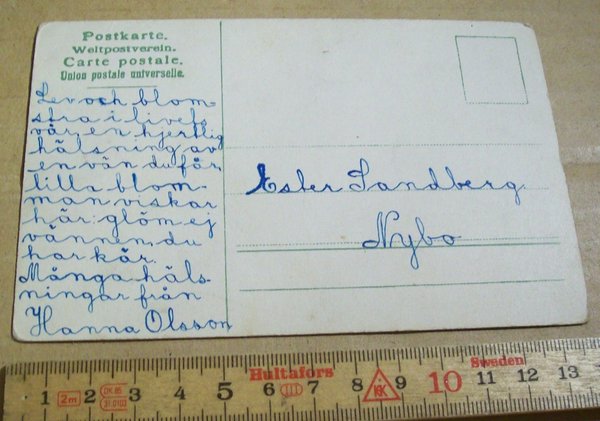 Postkarte.
Weltpostverein.
Carte postale.
Union postale universelle.
Lev och blom-
stra i livets
vår, en hjertlig
hälsning av
en vän du får,
lilla blom-
man viskar
här: glöm ej
vännen, du
har kär.
Många häls-
ningar från
Hanna Olsson
Ester Sandberg
Nybo
Hultafors
Sweden
1 2m 2 3 4 5 6 7 8 9 10 11 12 13